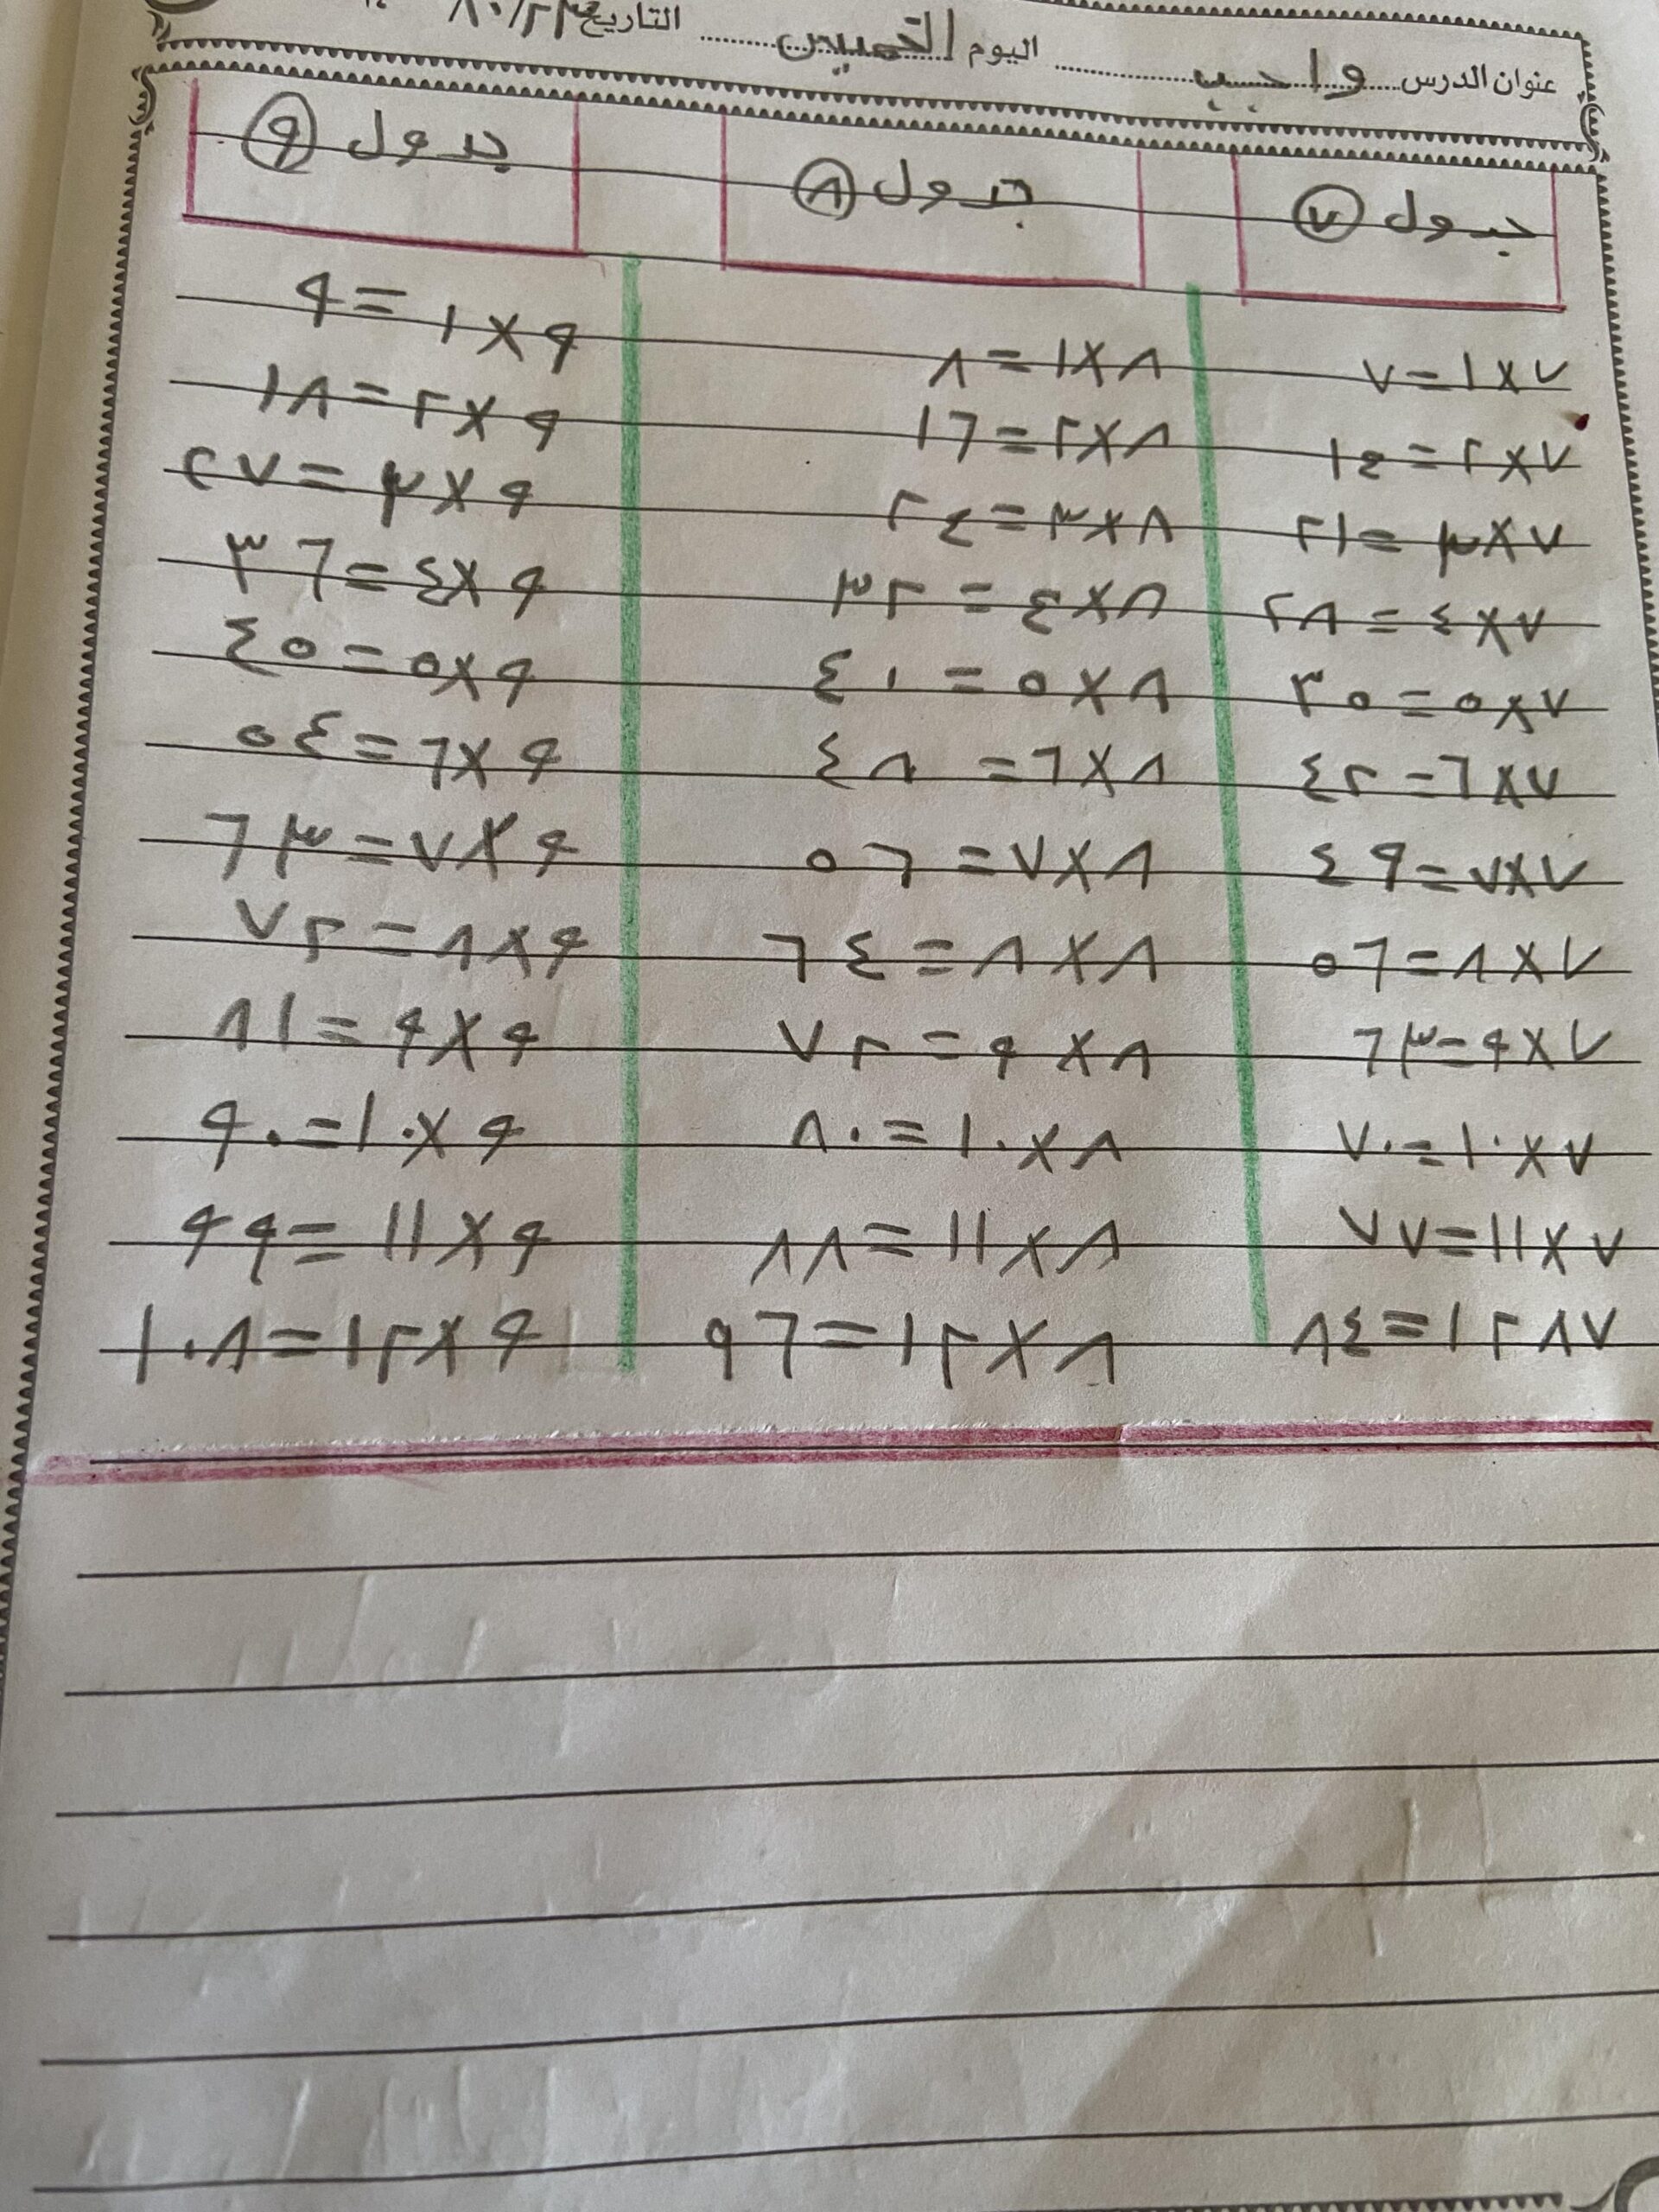 عنوان الدرس واجب اليوم الخميس التاريخ
جدول ٧ جدول ٨ جدول ٩
٧×١=٧
٧×٢=١٤
٧×٣=٢١
٧×٤=٢٨
٧×٥=٣٥
٧×٦=٤٢
٧×٧=٤٩
٧×٨=٥٦
٧×٩=٦٣
٧×١٠=٧٠
٧×١١=٧٧
٧٨١٢=٨٤
٨×١=٨
٨×٢=١٦
٨×٣=٢٤
٨×٤=٣٢
٨×٥=٤٠
٨×٦=٤٨
٨×٧=٥٦
٨×٨=٦٤
٨×٩=٧٢
٨×١٠=٨٠
٨×١١=٨٨
٨×١٢=٩٦
٩×١=٩
٩×٢=١٨
٩×٣=٢٧
٩×٤=٣٦
٩×٥=٤٥
٩×٦=٥٤
٩×٧=٦٣
٩×٨=٧٢
٩×٩=٨١
٩×١٠=٩٠
٩×١١=٩٩
٩×١٢=١٠٨